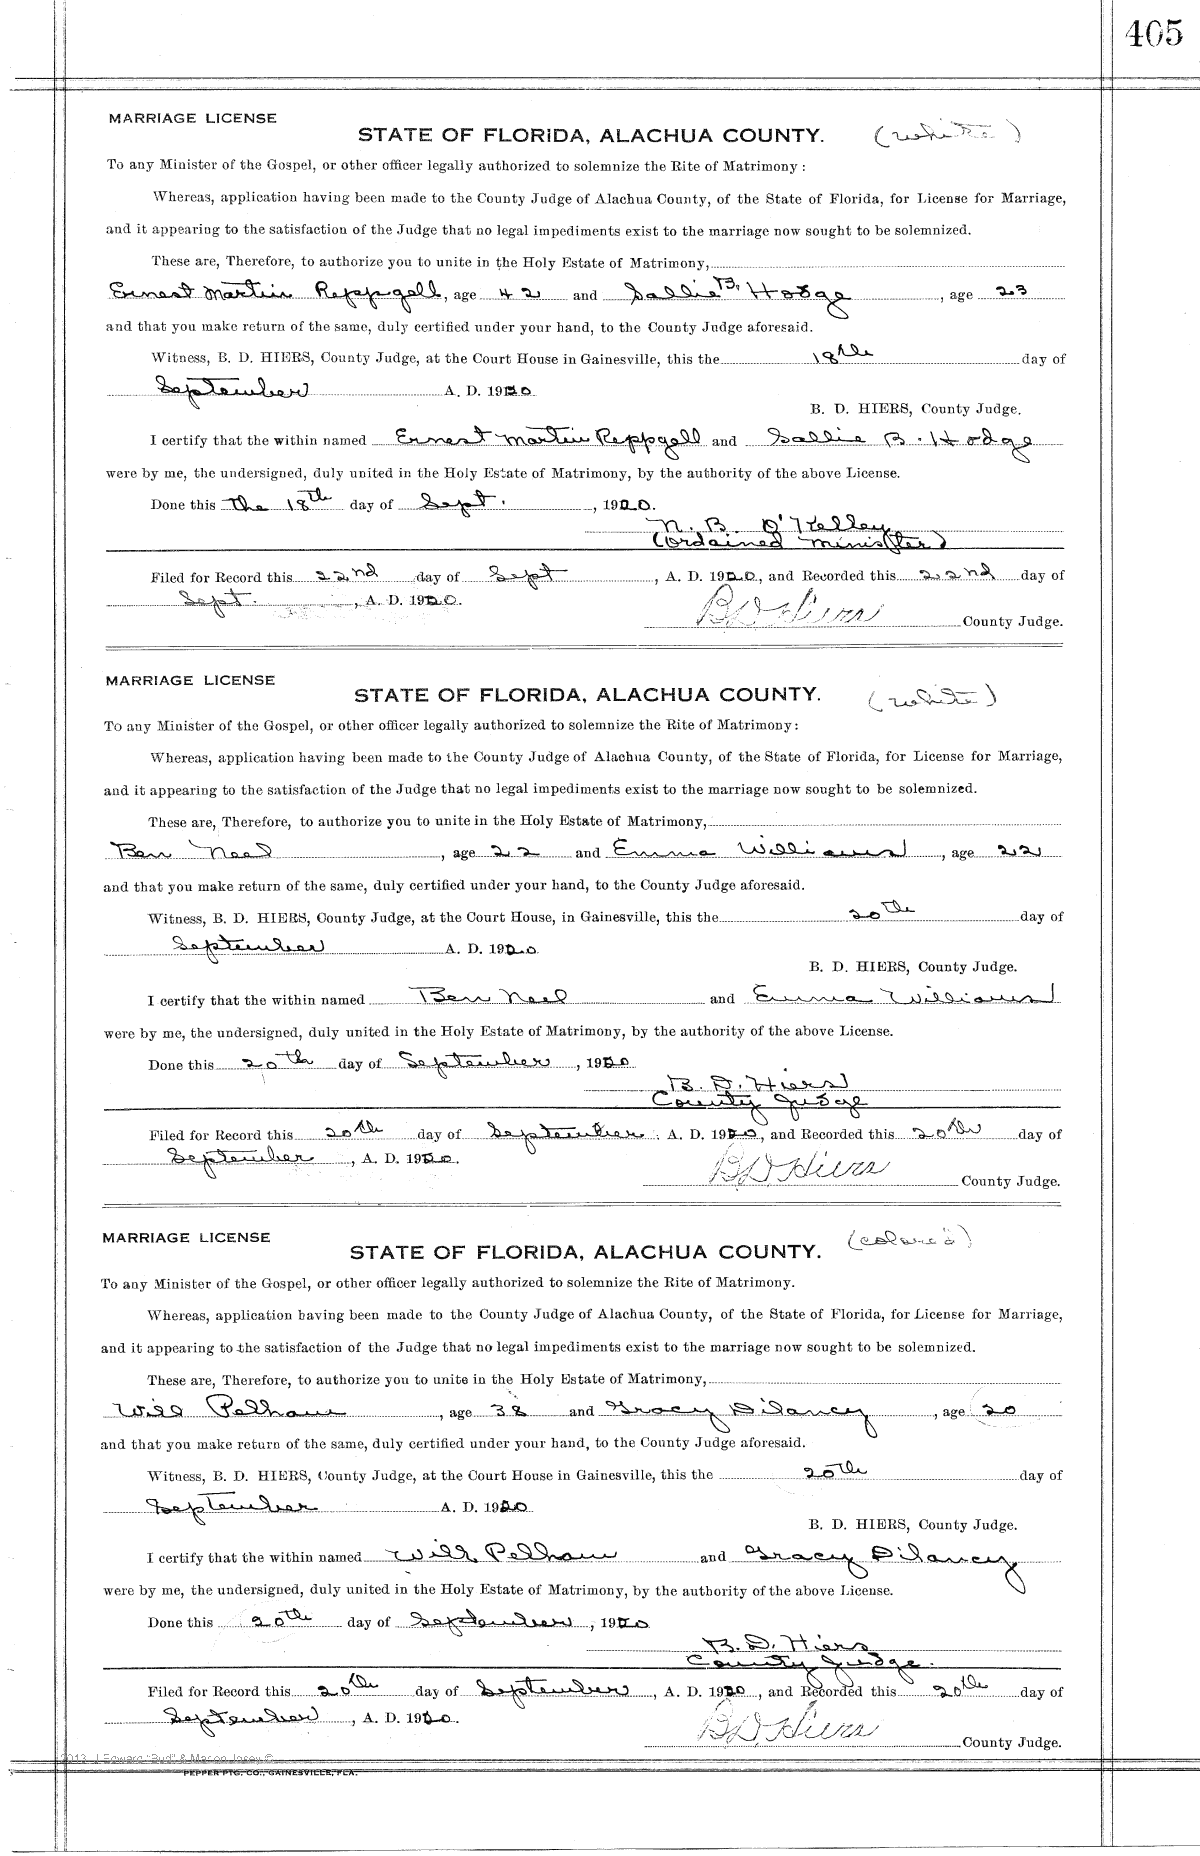 405
MARRIAGE LICENSE
STATE OF FLORIDA, ALACHUA COUNTY. (white)
To any Minister of the Gospel, or other officer legally authorized to solemnize the Rite of Matrimony :
Whereas, application having been made to the County Judge of Alachua County, of the State of Florida, for License for Marriage,
and it appearing to the satisfaction of the Judge that no legal impediments exist to the marriage now sought to be solemnized.
These are, Therefore, to authorize you to unite in the Holy Estate of Matrimony,
Ernest Martin Reppgell, age 42 and Sallie B. Hodge, age 23
and that you make return of the same, duly certified under your hand, to the County Judge aforesaid.
Witness, B. D. HIERS, County Judge, at the Court House in Gainesville, this the 18th day of
September A. D. 1920
B. D. HIERS, County Judge.
I certify that the within named Ernest Martin Reppgell and Sallie B. Hodge
were by me, the undersigned, duly united in the Holy Estate of Matrimony, by the authority of the above License.
Done this the 18th day of Sept. , 1920.
N. B. O'Kelley
(Ordained Minister)
Filed for Record this 22nd day of Sept , A. D. 1920, and Recorded this 22nd day of
Sept. , A. D. 1920.
B D Hiers County Judge.
MARRIAGE LICENSE
STATE OF FLORIDA, ALACHUA COUNTY. (white)
To any Minister of the Gospel, or other officer legally authorized to solemnize the Rite of Matrimony :
Whereas, application having been made to the County Judge of Alachua County, of the State of Florida, for License for Marriage,
and it appearing to the satisfaction of the Judge that no legal impediments exist to the marriage now sought to be solemnized.
These are, Therefore, to authorize you to unite in the Holy Estate of Matrimony,
Ben Neel , age 22 and Emma Williams , age 22
and that you make return of the same, duly certified under your hand, to the County Judge aforesaid.
Witness, B. D. HIERS, County Judge, at the Court House, in Gainesville, this the 20th day of
September A. D. 1920
B. D. HIERS, County Judge.
I certify that the within named Ben Neel and Emma Williams
were by me, the undersigned, duly united in the Holy Estate of Matrimony, by the authority of the above License.
Done this 20th day of September , 1920
B. D. Hiers
County Judge
Filed for Record this 20th day of September. A. D. 1920, and Recorded this 20th day of
September , A. D. 1920.
B D Hiers County Judge.
MARRIAGE LICENSE
STATE OF FLORIDA, ALACHUA COUNTY. (colored)
To any Minister of the Gospel, or other officer legally authorized to solemnize the Rite of Matrimony.
Whereas, application having been made to the County Judge of Alachua County, of the State of Florida, for License for Marriage,
and it appearing to the satisfaction of the Judge that no legal impediments exist to the marriage now sought to be solemnized.
These are, Therefore, to authorize you to unite in the Holy Estate of Matrimony,
Will Pelham , age 38 and Gracy Dilancy , age 20
and that you make return of the same, duly certified under your hand, to the County Judge aforesaid.
Witness, B. D. HIERS, County Judge, at the Court House in Gainesville, this the 20th day of
September A. D. 1920
B. D. HIERS, County Judge.
I certify that the within named Will Pelham and Gracy Dilancy
were by me, the undersigned, duly united in the Holy Estate of Matrimony, by the authority of the above License.
Done this 20th day of September , 1920
B. D. Hiers
County Judge.
Filed for Record this 20th day of September , A. D. 1920 , and Recorded this 20th day of
September , A. D. 1920.
B D Hiers County Judge.
2013 J Edward "Bud" & Macon Josey ©
PEPPER PTG. CO., GAINESVILLE, FLA.